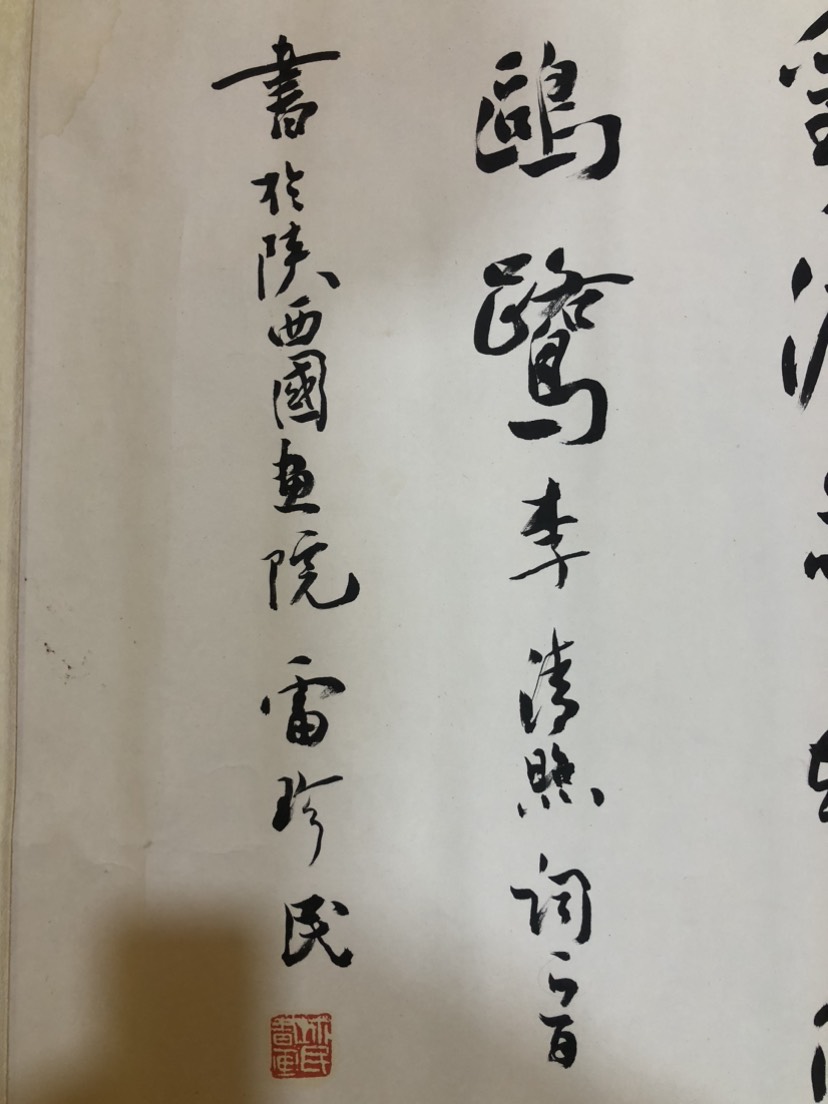 鷗鷺李清照詞二首
書於陝西國畫院雷珍民
珍民書画